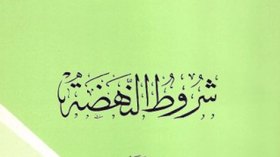 شروط النهضة